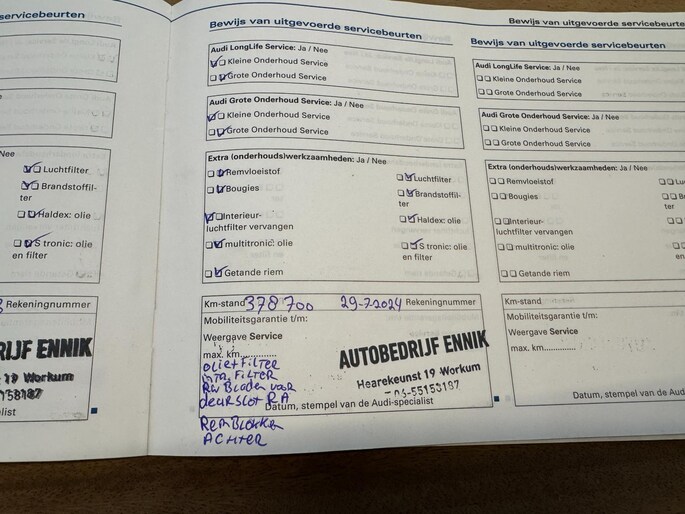 servicebeurten
Nee
Luchtfilter
Brandstoffil-
ter
Haldex: olie
S tronic: olie
en filter
Rekeningnummer
RIJF ENNIK
19 Workum
Bewijs van uitgevoerde servicebeurten
Audi LongLife Service: Ja / Nee
Kleine Onderhoud Service
Grote Onderhoud Service
Audi Grote Onderhoud Service: Ja / Nee
Kleine Onderhoud Service
Grote Onderhoud Service
Extra (onderhouds)werkzaamheden: Ja / Nee
Remvloeistof
Luchtfilter
Bougies
Brandstoffil-
ter
Interieur-
luchtfilter vervangen
Haldex: olie
multitronic: olie
S tronic: olie
en filter
Getande riem
Km-stand 378 700 29-7-2024 Rekeningnummer
Mobiliteitsgarantie t/m:
Weergave Service
max. km..............
AUTOBEDRIJF ENNIK
Hearekeunst 19 Workum
06-55158187
Datum, stempel van de Audi-specialist
olie+FilTER
FilTER
deurslot RA
RemBlokken
ACHTER
Bewijs van uitgevoerde servicebeurte
Bewijs van uitgevoerde servicebeurten
Audi LongLife Service: Ja / Nee
Kleine Onderhoud Service
Grote Onderhoud Service
Audi Grote Onderhoud Service: Ja / Nee
Kleine Onderhoud Service
Grote Onderhoud Service
Extra (onderhouds)werkzaamheden: Ja / Nee
Remvloeistof
Lu
Bougies
ter
Interieur-
luchtfilter vervangen
multitronic: olie
en
Getande riem
Km-stand
Mobiliteitsgarantie t/m:
Weergave Service
max. km..............
Datum, stempel van de Audi-s